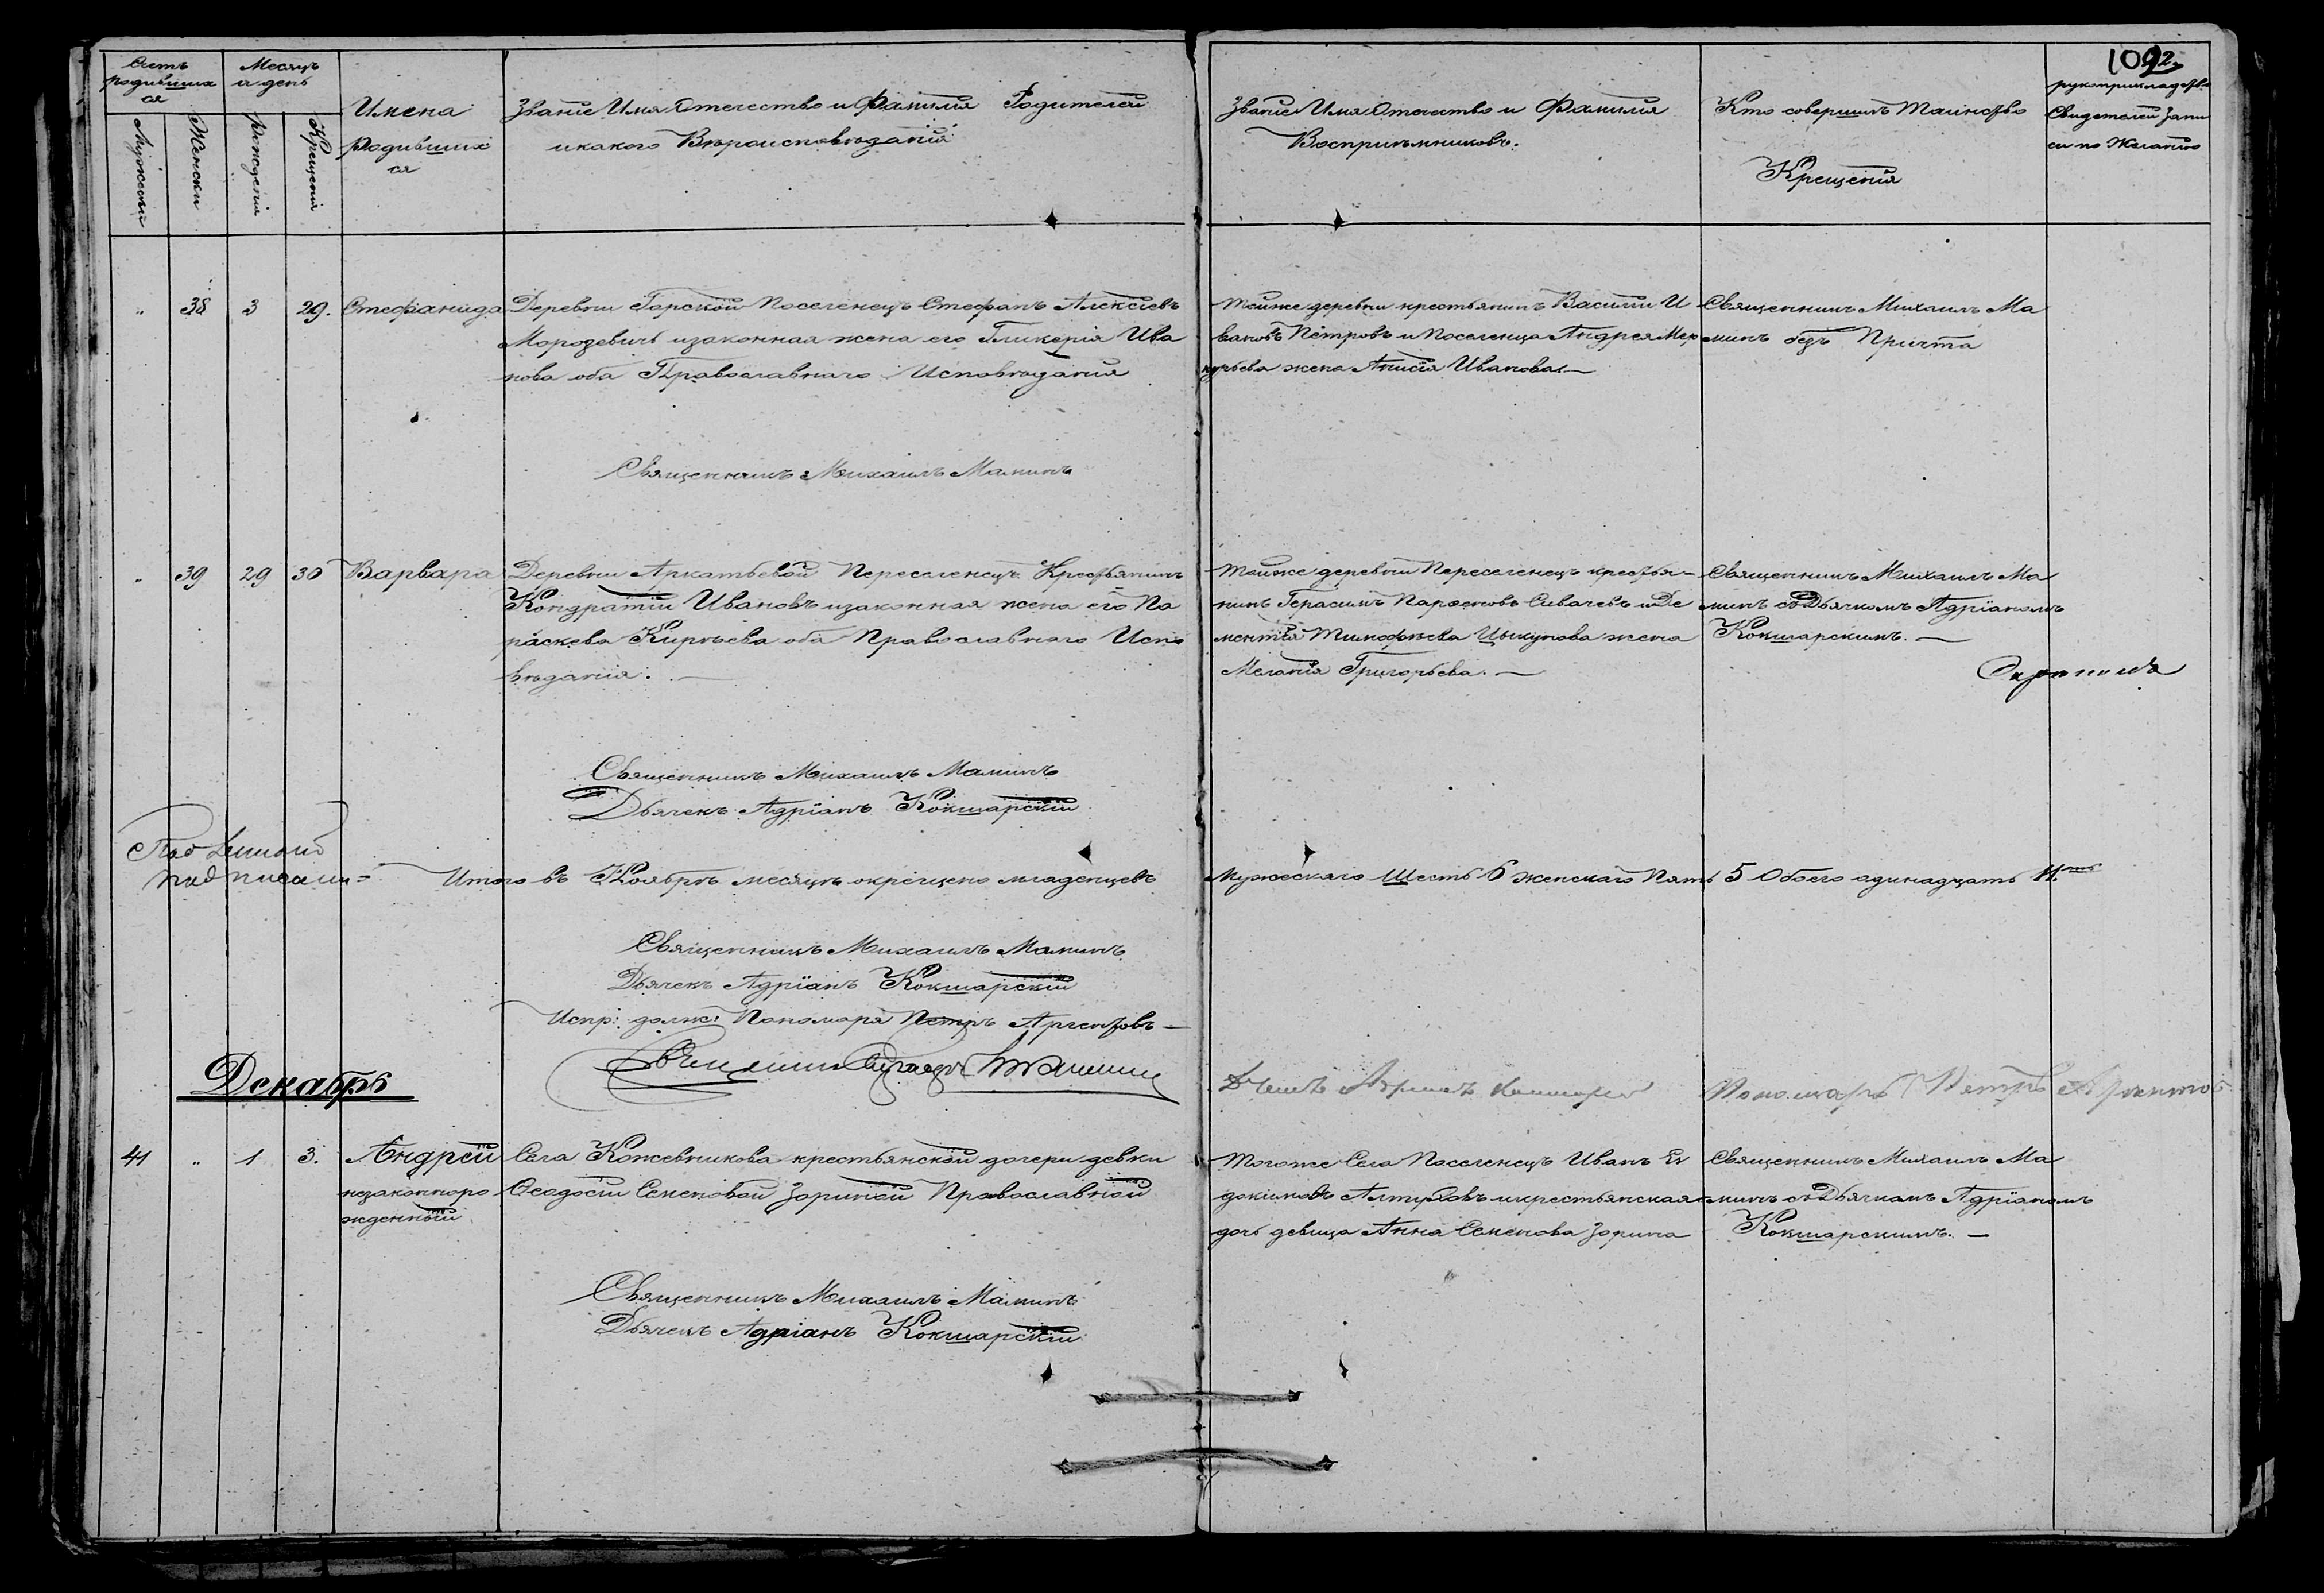 1092.
Счетъ
родивших
ся
Месяцъ
и день
Мужескій
Женски
Рожденія
Крещенія
Имена
Родивших
ся
Званіе Имя Отечество и Фамилія Родителей
и какого Вѣроисповѣданія
Званіе Имя Отечество и Фамилія
Воспріемниковъ.
Кто совершилъ Таинство
Крещенія
рукоприкладство
Свидетелей Запи
си по Желанію
" 38 3 29. Стефанида
Деревни Горской Поселенецъ Стефанъ Алексіевъ
Морозевичь и законная жена его Гликерія Ива
нова оба Православнаго Исповѣданія
тойже деревни крестьянинъ Василій И
вановъ Петровъ и Поселенца Андрея Мер
курьева жена Анисія Иванова. —
Священникъ Михаилъ Ма
минъ безъ Причта
Священникъ Михаилъ Маминъ
" 39 29 30 Варвара
Деревни Аркатьевой Переселенецъ Крестьянинъ
Кондратій Ивановъ и законная жена его Па
раскева Кирѣева оба Православнаго Испо
вѣданія. —
тойже деревни Переселенецъ крестья-
нинъ Герасимъ Парѳеновъ Сивачевъ и Де
ментія Тимофѣева Цыкунова жена
Меланія Григорьева. —
Священникъ Михаилъ Ма
минъ съ Дьячкомъ Адріаномъ
Кокшарскимъ. —
Священникъ Михаилъ Маминъ
Дьячекъ Адріанъ Кокшарскій
Итого въ Ноябрѣ месяцѣ окрещено младенцевъ
Мужескаго Шесть 6 женскаго Пять 5 Обоего одинадцать 11.
Священникъ Михаилъ Маминъ
Дьячекъ Адріанъ Кокшарскій
Испр: долж: Пономаря Петръ Аргентовъ —
Пономарь Петръ Аргентовъ
Декабрь
41 " 1 3. Андрей
незаконноро
жденный
Села Кожевникова крестьянской дочери девки
Ѳеодосіи Семеновой Зориной Православной
Тогоже Села Поселенецъ Иванъ Ев
докимовъ Алтуховъ и крестьянская
дочь девица Анна Семенова Зорина
Священникъ Михаилъ Ма
минъ съ Дьячкамъ Адріаномъ
Кокшарскимъ. —
Священникъ Михаилъ Маминъ
Дьячекъ Адріанъ Кокшарскій